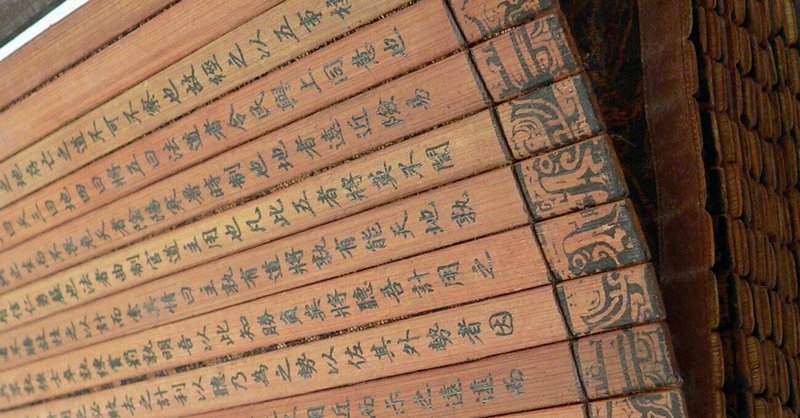 之地存亡之道不可不察也故經之以五事校
曰天三曰地四曰將五曰法道者令民與上同意也
之生而不畏危天者陰陽寒暑時制也地者遠近險易
信仁勇嚴也法者曲制官道主用也凡此五者將莫不聞
故校之以計而索其情曰主孰有道將孰有能天地孰
孰強士卒孰練賞罰孰明吾以此知勝負矣將聽吾計用之
必敗去之計利以聽乃為之勢以佐其外勢者因
用而示之不用近而示之遠遠而